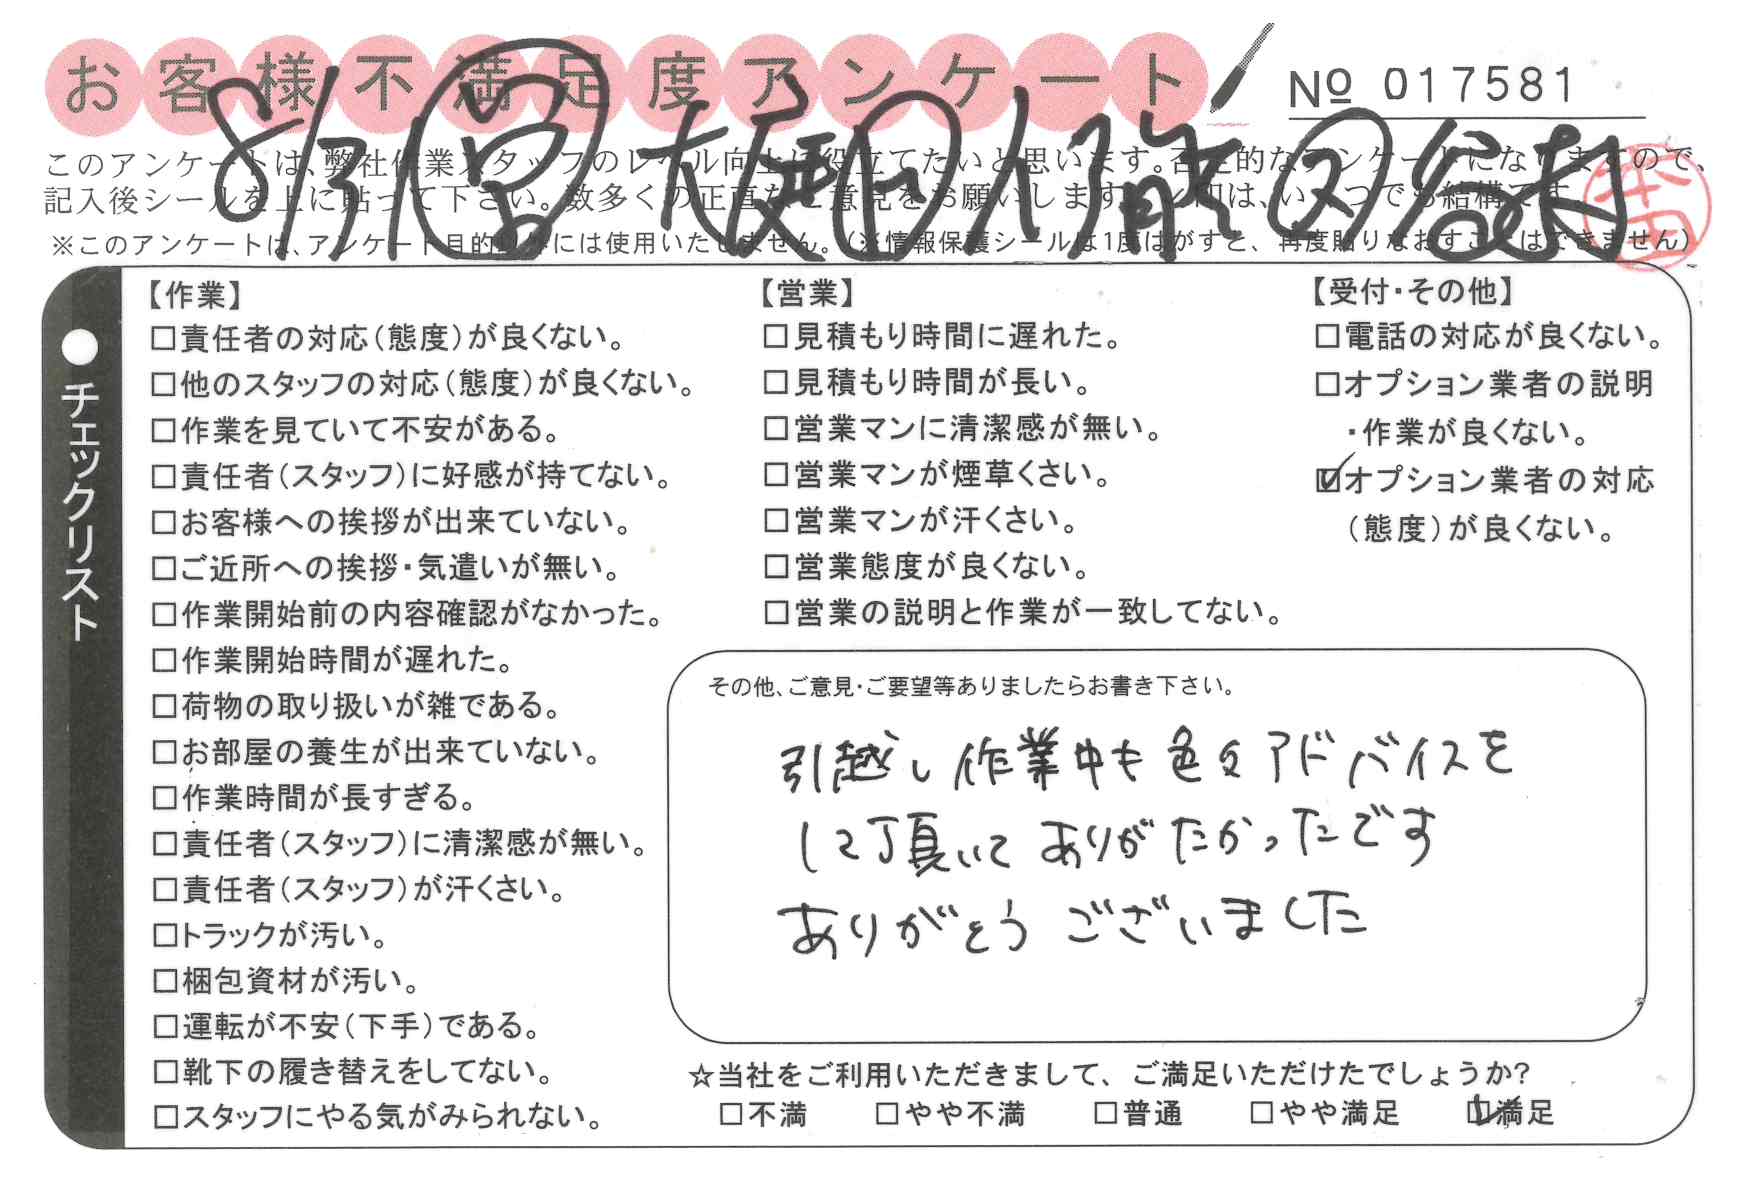 お客様不満足度アンケート
№ 017581
8/31 宮 大堀田 仁能 又 谷村
このアンケートは、弊社作業スタッフのレベル向上に役立てたいと思います。否定的なアンケートになりますので、
記入後シールを上に貼って下さい。数多くの正直なご意見をお願いします。✓印は、いくつでも結構です。
※このアンケートは、アンケート目的以外には使用いたしません。(※情報保護シールは1度はがすと、再度貼りなおすことはできません)
チェックリスト
【作業】
□責任者の対応(態度)が良くない。
□他のスタッフの対応(態度)が良くない。
□作業を見ていて不安がある。
□責任者(スタッフ)に好感が持てない。
□お客様への挨拶が出来ていない。
□ご近所への挨拶・気遣いが無い。
□作業開始前の内容確認がなかった。
□作業開始時間が遅れた。
□荷物の取り扱いが雑である。
□お部屋の養生が出来ていない。
□作業時間が長すぎる。
□責任者(スタッフ)に清潔感が無い。
□責任者(スタッフ)が汗くさい。
□トラックが汚い。
□梱包資材が汚い。
□運転が不安(下手)である。
□靴下の履き替えをしてない。
□スタッフにやる気がみられない。
【営業】
□見積もり時間に遅れた。
□見積もり時間が長い。
□営業マンに清潔感が無い。
□営業マンが煙草くさい。
□営業マンが汗くさい。
□営業態度が良くない。
□営業の説明と作業が一致してない。
【受付・その他】
□電話の対応が良くない。
□オプション業者の説明
・作業が良くない。
☑オプション業者の対応
(態度)が良くない。
その他、ご意見・ご要望等ありましたらお書き下さい。
引越し作業中も色々アドバイスを
して頂いてありがたかったです
ありがとうございました
☆当社をご利用いただきまして、ご満足いただけたでしょうか?
□不満 □やや不満 □普通 □やや満足 ☑満足